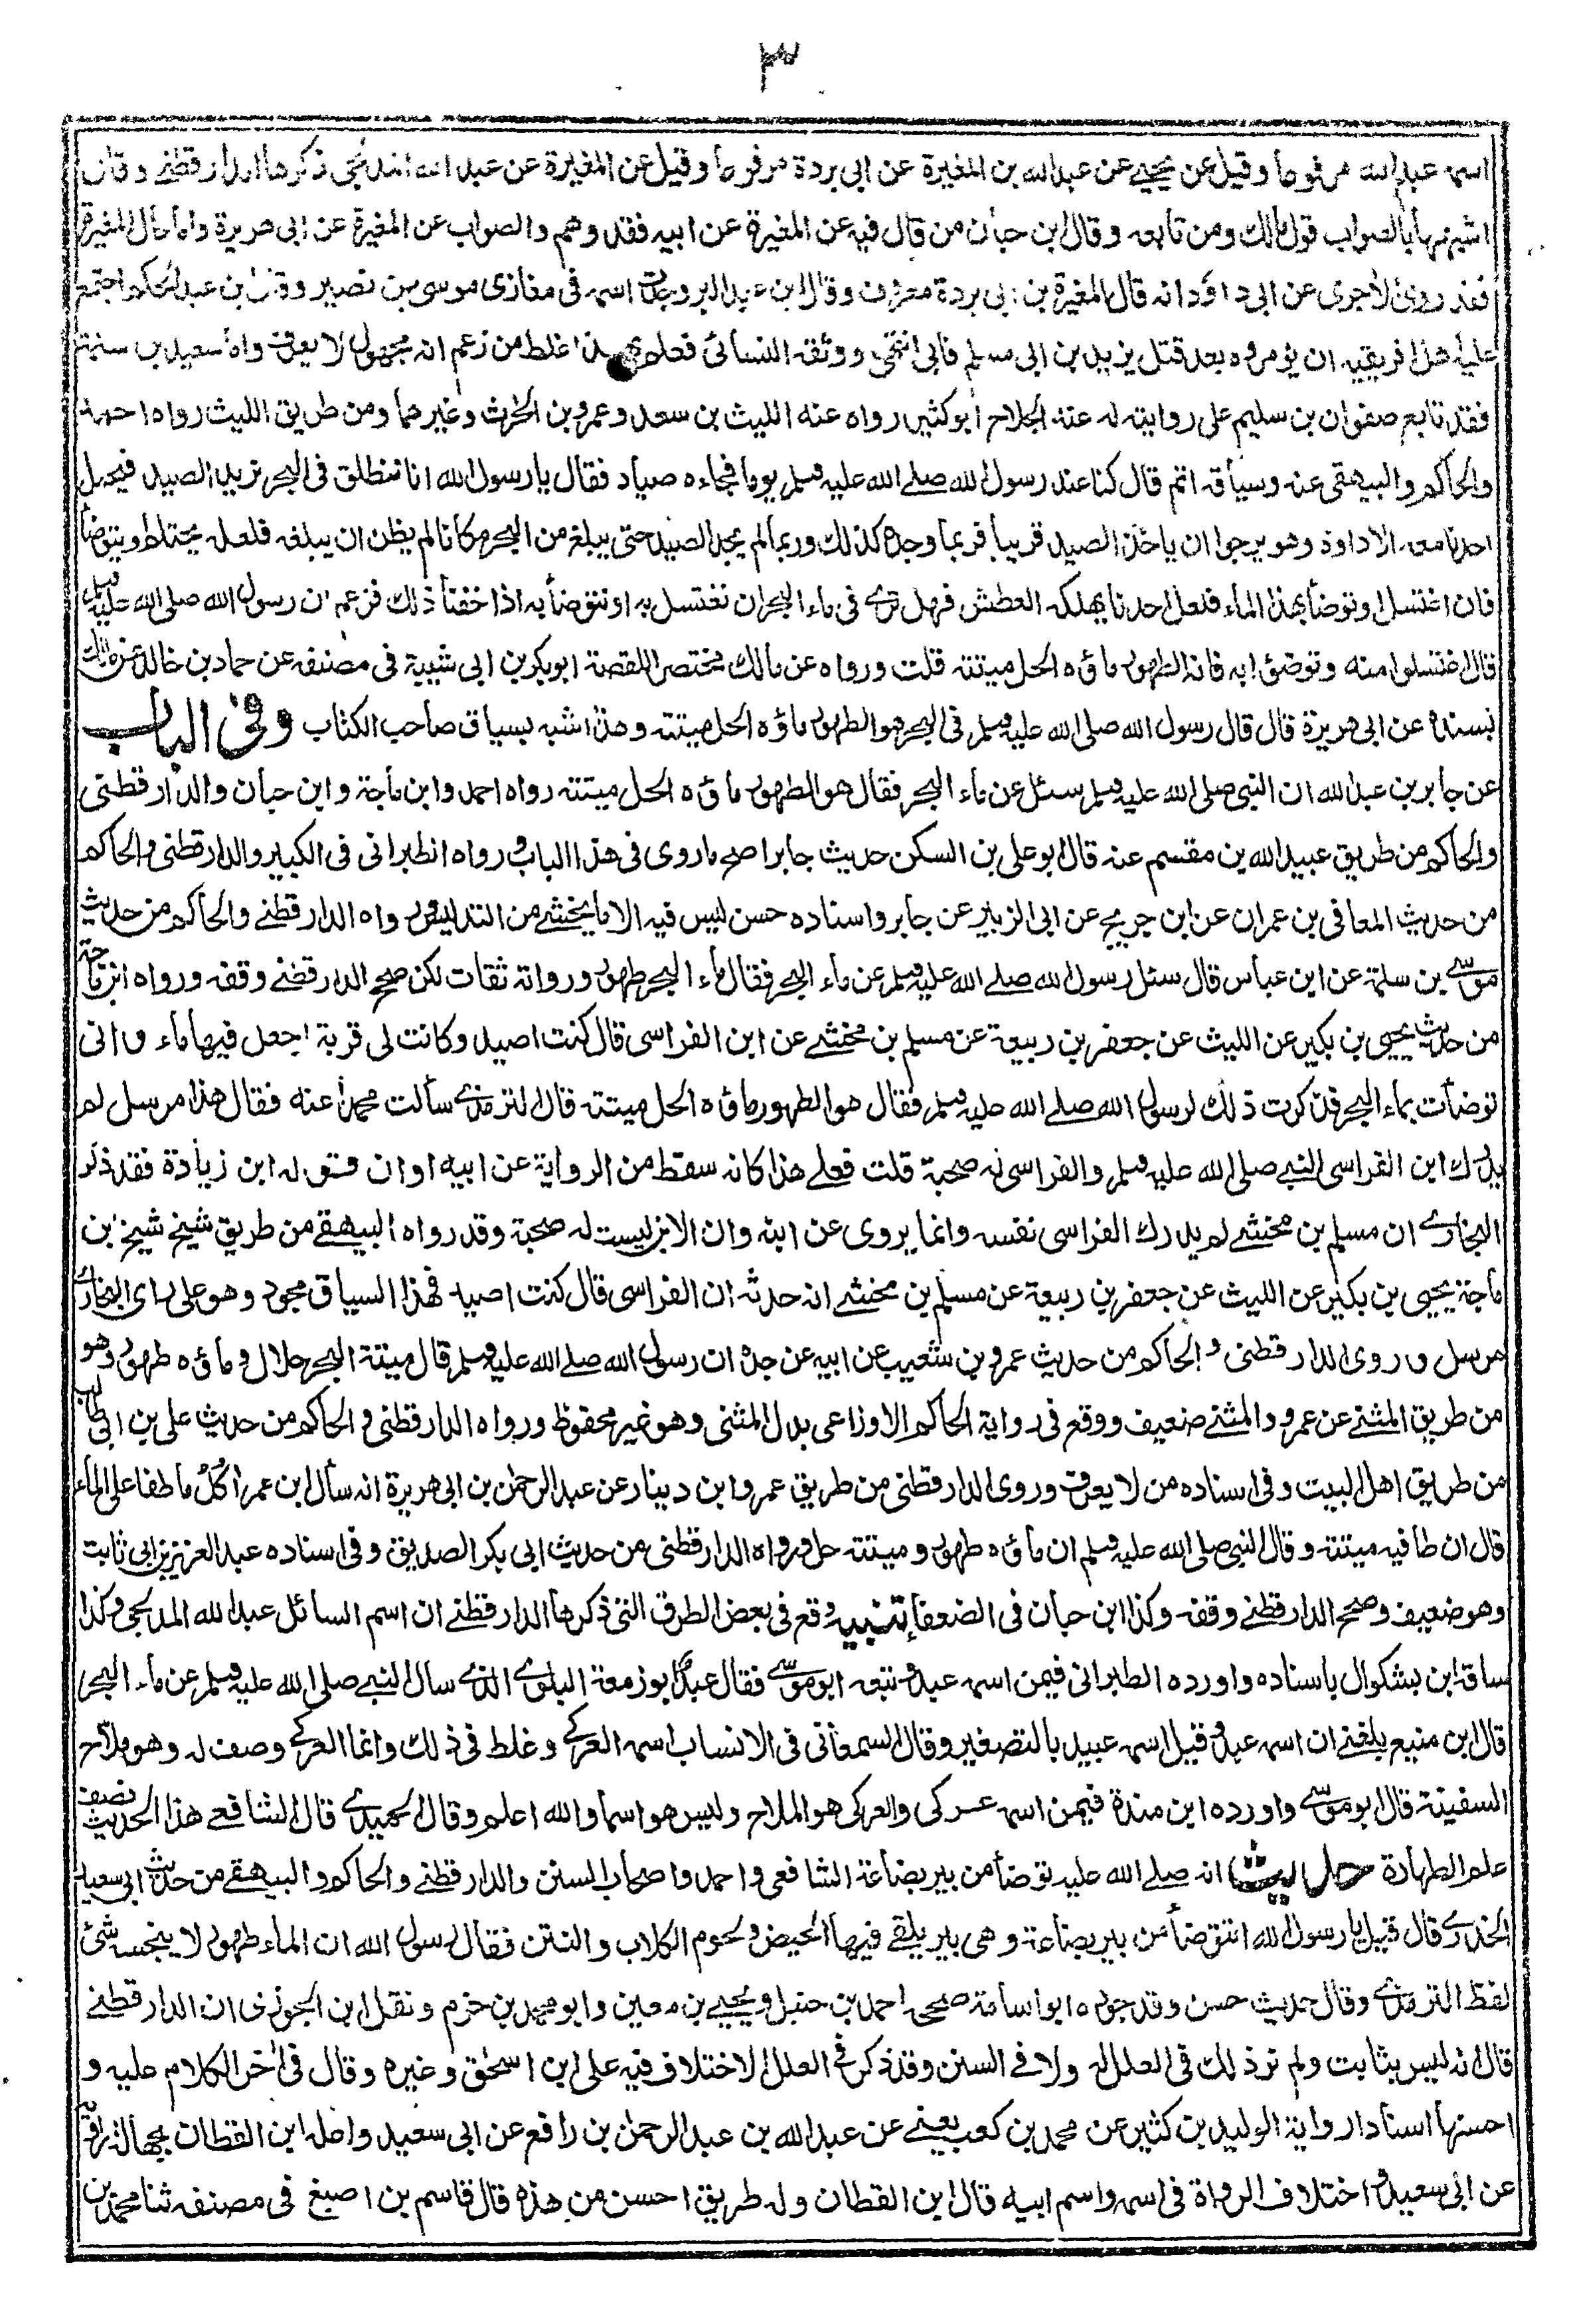 ٣
اسمه عبد الله مرفوعا وقيل عن يحيى عن عبد الله بن المغيرة عن ابى بردة مرفوعا وقيل عن المغيرة عن عبد الله المدلجى ذكرها الدارقطنے وقال
اشبهها بالصواب قول مالك ومن تابعه وقال ابن حبان من قال فيه عن المغيرة عن ابيه فقد وهم والصواب عن المغيرة عن ابى هريرة واما حال المغيرة
فقد روى الاجرى عن ابى داؤد انه قال المغيرة بن ابى بردة معروف وقال ابن عبد البر وجدت اسمه فى مغازى موسى بن نصير وقال ابن عبد الحكم اجتمع
عليه اهل افريقيه ان يؤمروه بعد قتل يزيد بن ابى مسلم فابى انتهى ووثقه النسائى فعلم بهذا غلط من زعم انه مجهول لا يعرف واما سعيد بن سلمة
فقد تابع صفوان بن سليم على روايته له عنه الجلاح ابو كثير رواه عنه الليث بن سعد وعمرو بن الحرث وغيرهما ومن طريق الليث رواه احمد
والحاكم والبيهقى عنه وسياقه اتم قال كنا عند رسول الله صلے الله عليه وسلم يوما فجاءه صياد فقال يا رسول الله انا ننطلق فى البحر نريد الصيد فيحمل
احدنا معه الاداوة وهو يرجوا ان ياخذ الصيد قريبا فربما وجده كذلك وربما لم يجد الصيد حتى يبلغ من البحر مكانا لم يظن ان يبلغه فلعله يحتلم او يتوضأ
فان اغتسل او توضأ بهذا الماء فلعل احدنا يهلكه العطش فهل ترے فى ماء البحر ان نغتسل به او نتوضأ به اذا خفنا ذلك فزعم ان رسول الله صلى الله عليه وسلم
قال اغتسلوا منه وتوضئوا به فانه الطهور ماؤه الحل ميتته قلت ورواه عن مالك مختصر القصة ابو بكر بن ابى شيبة فى مصنفه عن حماد بن خالد عن مالك
بسنده عن ابى هريرة قال قال رسول الله صلى الله عليه وسلم فى البحر هو الطهور ماؤه الحل ميتته وهذا اشبه بسياق صاحب الكتاب وفى الباب
عن جابر بن عبد الله ان النبى صلى الله عليه وسلم سئل عن ماء البحر فقال هو الطهور ماؤه الحل ميتته رواه احمد وابن ماجة وابن حبان والدارقطنى
والحاكم من طريق عبيد الله بن مقسم عنه قال ابو على بن السكن حديث جابر اصح ما روى فى هذا الباب ورواه الطبرانى فى الكبير والدارقطنى والحاكم
من حديث المعافى بن عمران عن ابن جريج عن ابى الزبير عن جابر واسناده حسن ليس فيه الا ما يخشے من التدليس ورواه الدارقطنے والحاكم من حديث
موسے بن سلمة عن ابن عباس قال سئل رسول الله صلے الله عليه وسلم عن ماء البحر فقال ماء البحر طهور ورواته ثقات لكن صحح الدارقطنے وقفه ورواه ابن ماجة
من حديث يحيى بن بكير عن الليث عن جعفر بن ربيعة عن مسلم بن مخشے عن ابن الفراسى قال كنت اصيد وكانت لى قربة اجعل فيها ماء وانى
توضأت بماء البحر فذكرت ذلك لرسول الله صلے الله عليه وسلم فقال هو الطهور ماؤه الحل ميتته قال الترمذے سألت محمدا عنه فقال هذا مرسل لم
يدرك ابن الفراسى النبے صلى الله عليه وسلم والفراسى له صحبة قلت فعلے هذا كانه سقط من الرواية عن ابيه او ان قوله ابن زيادة فقد ذكر
البخارے ان مسلم بن مخشے لم يدرك الفراسى نفسه وانما يروى عن ابنه وان الابن ليست له صحبة وقد رواه البيهقے من طريق شيخ شيخ ابن
ماجة يحيى بن بكير عن الليث عن جعفر بن ربيعة عن مسلم بن مخشے انه حدثه ان الفراسى قال كنت اصيد فهذا السياق مجود وهو على راى البخارى
مرسل وروى الدارقطنى والحاكم من حديث عمرو بن شعيب عن ابيه عن جده ان رسول الله صلے الله عليه وسلم قال ميتة البحر حلال وماؤه طهور وهو
من طريق المثنے عن عمرو والمثنے ضعيف ووقع فى رواية الحاكم الاوزاعى بدل المثنى وهو غير محفوظ ورواه الدارقطنى والحاكم من حديث على بن ابى طالب
من طريق اهل البيت وفى اسناده من لا يعرف وروى الدارقطنى من طريق عمرو ابن دينار عن عبد الرحمن بن ابى هريرة انه سأل ابن عمر اكل ما طفا على الماء
قال ان طافيه ميتته وقال النبى صلى الله عليه وسلم ان ماؤه طهور وميتته حل ورواه الدارقطنى من حديث ابى بكر الصديق وفى اسناده عبد العزيز بن ابى ثابت
وهو ضعيف وصحح الدارقطنے وقفه وكذا ابن حبان فى الضعفاء تنبيه وقع فى بعض الطرق التى ذكرها الدارقطنے ان اسم السائل عبد الله المدلجى وكذا
ساقه ابن بشكوال باسناده واورده الطبرانى فيمن اسمه عبد وتبعه ابو موسے فقال عبد ابو زمعة البلوے الذے سال النبے صلى الله عليه وسلم عن ماء البحر
قال ابن منيع بلغنے ان اسمه عبد وقيل اسمه عبيد بالتصغير وقال السمعانى فى الانساب اسمه العركے وغلط فى ذلك وانما العركے وصف له وهو ملاح
السفينة قال ابو موسے واورده ابن مندة فيمن اسمه عركى والعركى هو الملاح وليس هو اسما والله اعلم وقال الحميدے قال الشافعے هذا الحديث نصف
علم الطهارة حديث انه صلے الله عليه توضأ من بير بضاعة الشافعى واحمد واصحاب السنن والدارقطنے والحاكم والبيهقے من حديث ابى سعيد
الخدرے قال قيل يا رسول الله انتوضأ من بير بضاعة وهى بير يلقے فيها الحيض ولحوم الكلاب والنتن فقال رسول الله ان الماء طهور لا ينجسه شئ
لفظ الترمذے وقال حديث حسن وقد جوده ابو اسامة وصححه احمد بن حنبل ويحيے بن معين وابو محمد بن حزم ونقل ابن الجوزى ان الدارقطنے
قال انه ليس بثابت ولم نر ذلك فى العلل له ولا فے السنن وقد ذكر فے العلل الاختلاف فيه على ابن اسحق وغيره وقال فى اخر الكلام عليه و
احسنها اسنادا رواية الوليد بن كثير عن محمد بن كعب يعنے عن عبد الله بن عبد الرحمن بن رافع عن ابى سعيد واعله ابن القطان بجهالة راويه
عن ابى سعيد واختلاف الرواة فى اسمه واسم ابيه قال ابن القطان وله طريق احسن من هذه قال قاسم بن اصبغ فى مصنفه ثنا محمد بن